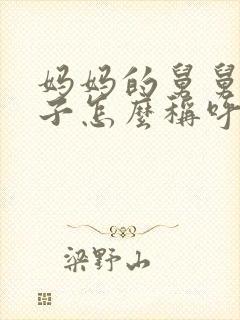 妈妈的舅舅
子怎麼稱呼
梁野山